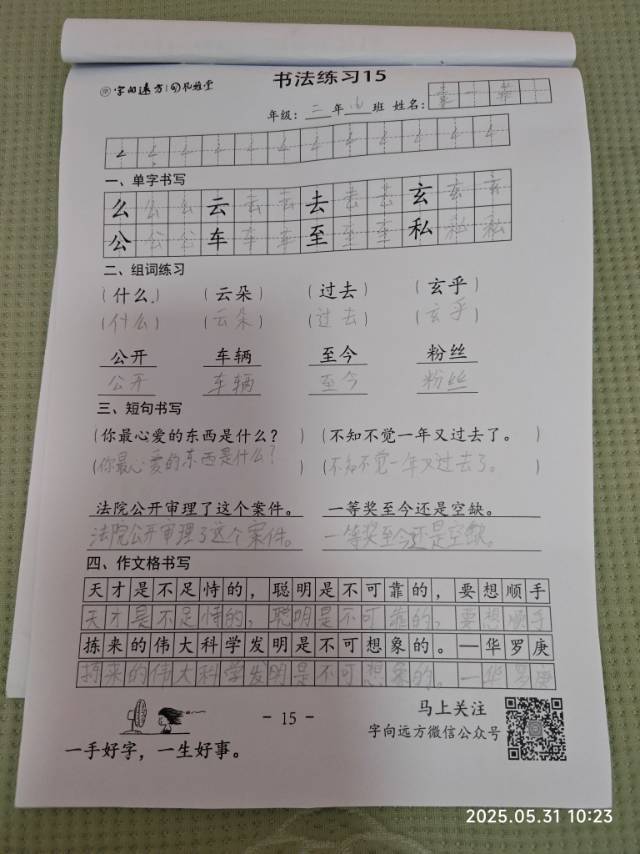 字向远方 风雅堂
书法练习15
年级：二年 班 姓名： 一
一、单字书写
么 么 么 云 云 云 去 去 去 玄 玄 玄
公 公 公 车 车 车 至 至 至 私 私 私
二、组词练习
（什么）（云朵）（过去）（玄乎）
（什么）（云朵）（过去）（玄乎）
公开 车辆 至今 粉丝
公开 车辆 至今 粉丝
三、短句书写
（你最心爱的东西是什么？ ）（不知不觉一年又过去了。 ）
（你最心爱的东西是什么？ ）（不知不觉一年又过去了。 ）
法院公开审理了这个案件。 一等奖至今还是空缺。
法院公开审理了这个案件。 一等奖至今还是空缺。
四、作文格书写
天才是不足恃的，聪明是不可靠的，要想顺手
天才是不足恃的，聪明是不可靠的，要想顺手
拣来的伟大科学发明是不可想象的。—华罗庚
拣来的伟大科学发明是不可想象的。—华罗庚
一手好字，一生好事。
- 15 -
马上关注
字向远方微信公众号
2025.05.31 10:23